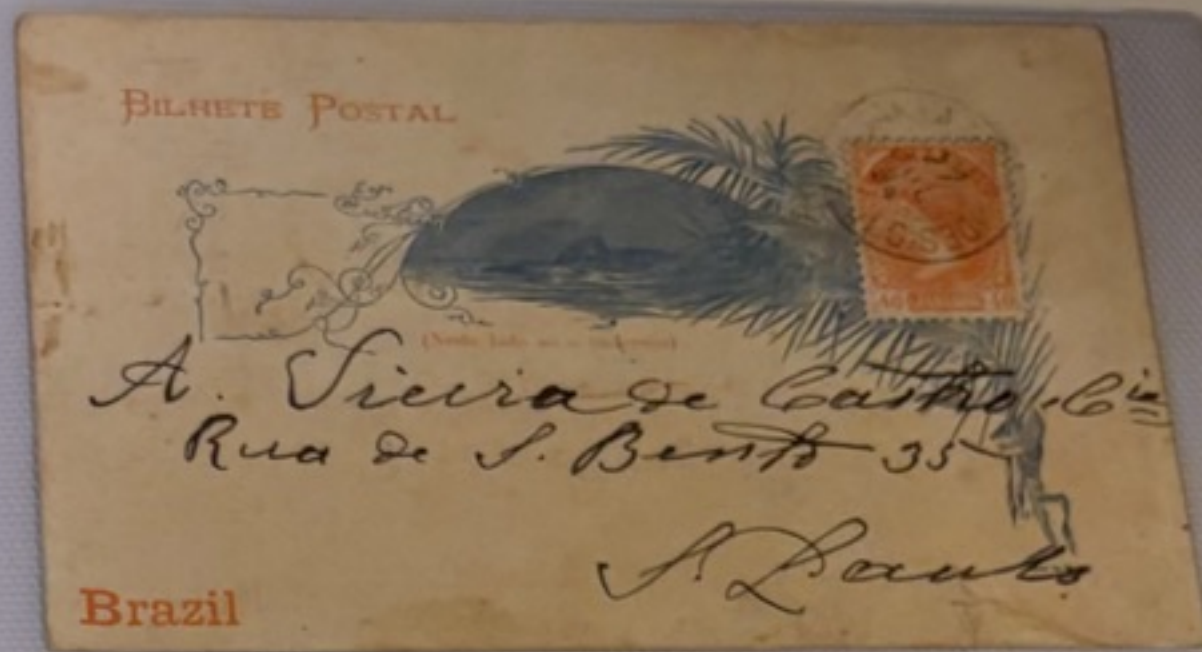 BILHETE POSTAL
A. Vieira de Castro & Cia
Rua de S. Bento 35
S. Paulo
Brazil